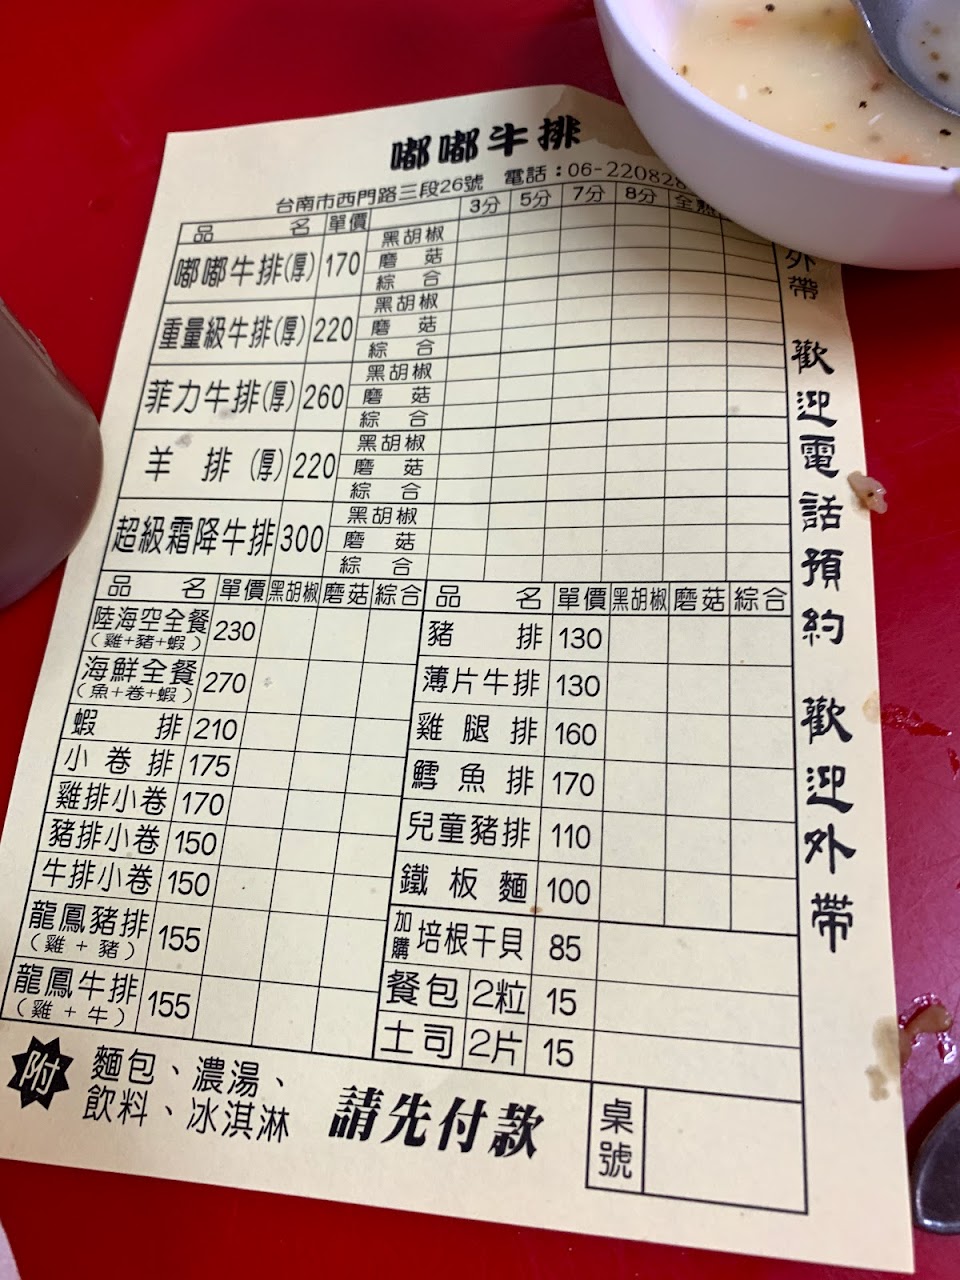 嘟嘟牛排
台南市西門路三段26號 電話：06-220828
品名 單價 3分 5分 7分 8分 全熟
嘟嘟牛排(厚) 170 黑胡椒
磨菇
綜合
重量級牛排(厚) 220 黑胡椒
磨菇
綜合
菲力牛排(厚) 260 黑胡椒
磨菇
綜合
羊排(厚) 220 黑胡椒
磨菇
綜合
超級霜降牛排 300 黑胡椒
磨菇
綜合
品名 單價 黑胡椒 磨菇 綜合
陸海空全餐 230
(雞+豬+蝦)
海鮮全餐 270
(魚+卷+蝦)
蝦排 210
小卷排 175
雞排小卷 170
豬排小卷 150
牛排小卷 150
龍鳳豬排 155
(雞+豬)
龍鳳牛排 155
(雞+牛)
品名 單價 黑胡椒 磨菇 綜合
豬排 130
薄片牛排 130
雞腿排 160
鱈魚排 170
兒童豬排 110
鐵板麵 100
加購 培根干貝 85
餐包 2粒 15
土司 2片 15
附 麵包、濃湯、
飲料、冰淇淋
請先付款
桌號
外帶
歡迎電話預約 歡迎外帶